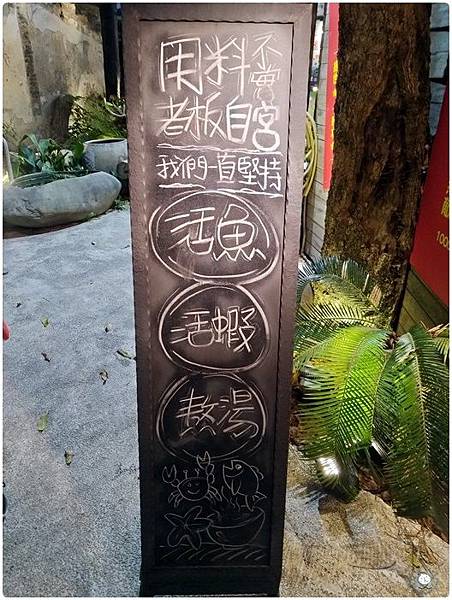 用料不實
老板自宮
我們一直堅持
活魚
活蝦
熬湯
100